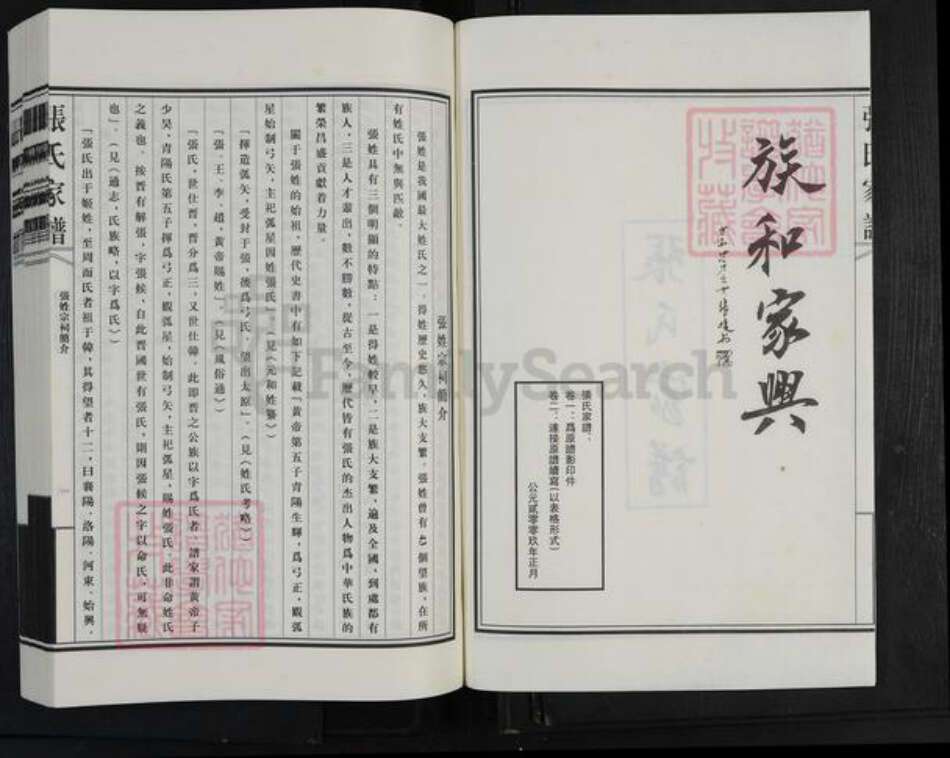 族和家興
張氏家譜：
卷一：爲原譜影印件
卷二：連接原譜續寫（以表格形式）
公元貳零零玖年正月
張姓宗祠簡介
張姓是我國最大姓氏之一，得姓歷史悠久，族大支繁。張姓曾有43個望族，在所
有姓氏中無與匹敵。
張姓具有三個明顯的特點：一是得姓較早，二是族大支繁，遍及全國，到處都有
族人，三是人才輩出，數不勝數，從古至今，歷代皆有張氏的杰出人物爲中華民族的
繁榮昌盛貢獻着力量。
關于張姓的始祖，歷代史書中有如下記載「黃帝第五子青陽生輝，爲弓正，觀弧
星始制弓矢，主祀弧星因姓張氏」。（見《元和姓纂》）
「揮造弧矢，受封于張，後爲弓氏，望出太原」。（見《姓氏考略》）
「張、王、李、趙，黃帝賜姓」。（見《風俗通》）
「張氏，世仕晋，晋分爲三，又世仕韓，此即晋之公族以字爲氏者，譜家謂黃帝子
少昊，青陽氏第五子揮爲弓正，觀弧星，始制弓矢，主祀弧星，賜姓張氏，此非命姓氏
之義也。按晋有解張，字張候，自此晋國世有張氏，則因張候之字以命氏，可無疑
也」。（見《通志，氏族略，以字爲氏》）
「張氏出于姬姓，至周而氏者祖于韓，其得望者十二，曰襄陽、洛陽、河東、始興、
張氏家譜
張姓宗祠簡介
一
FamilySearch